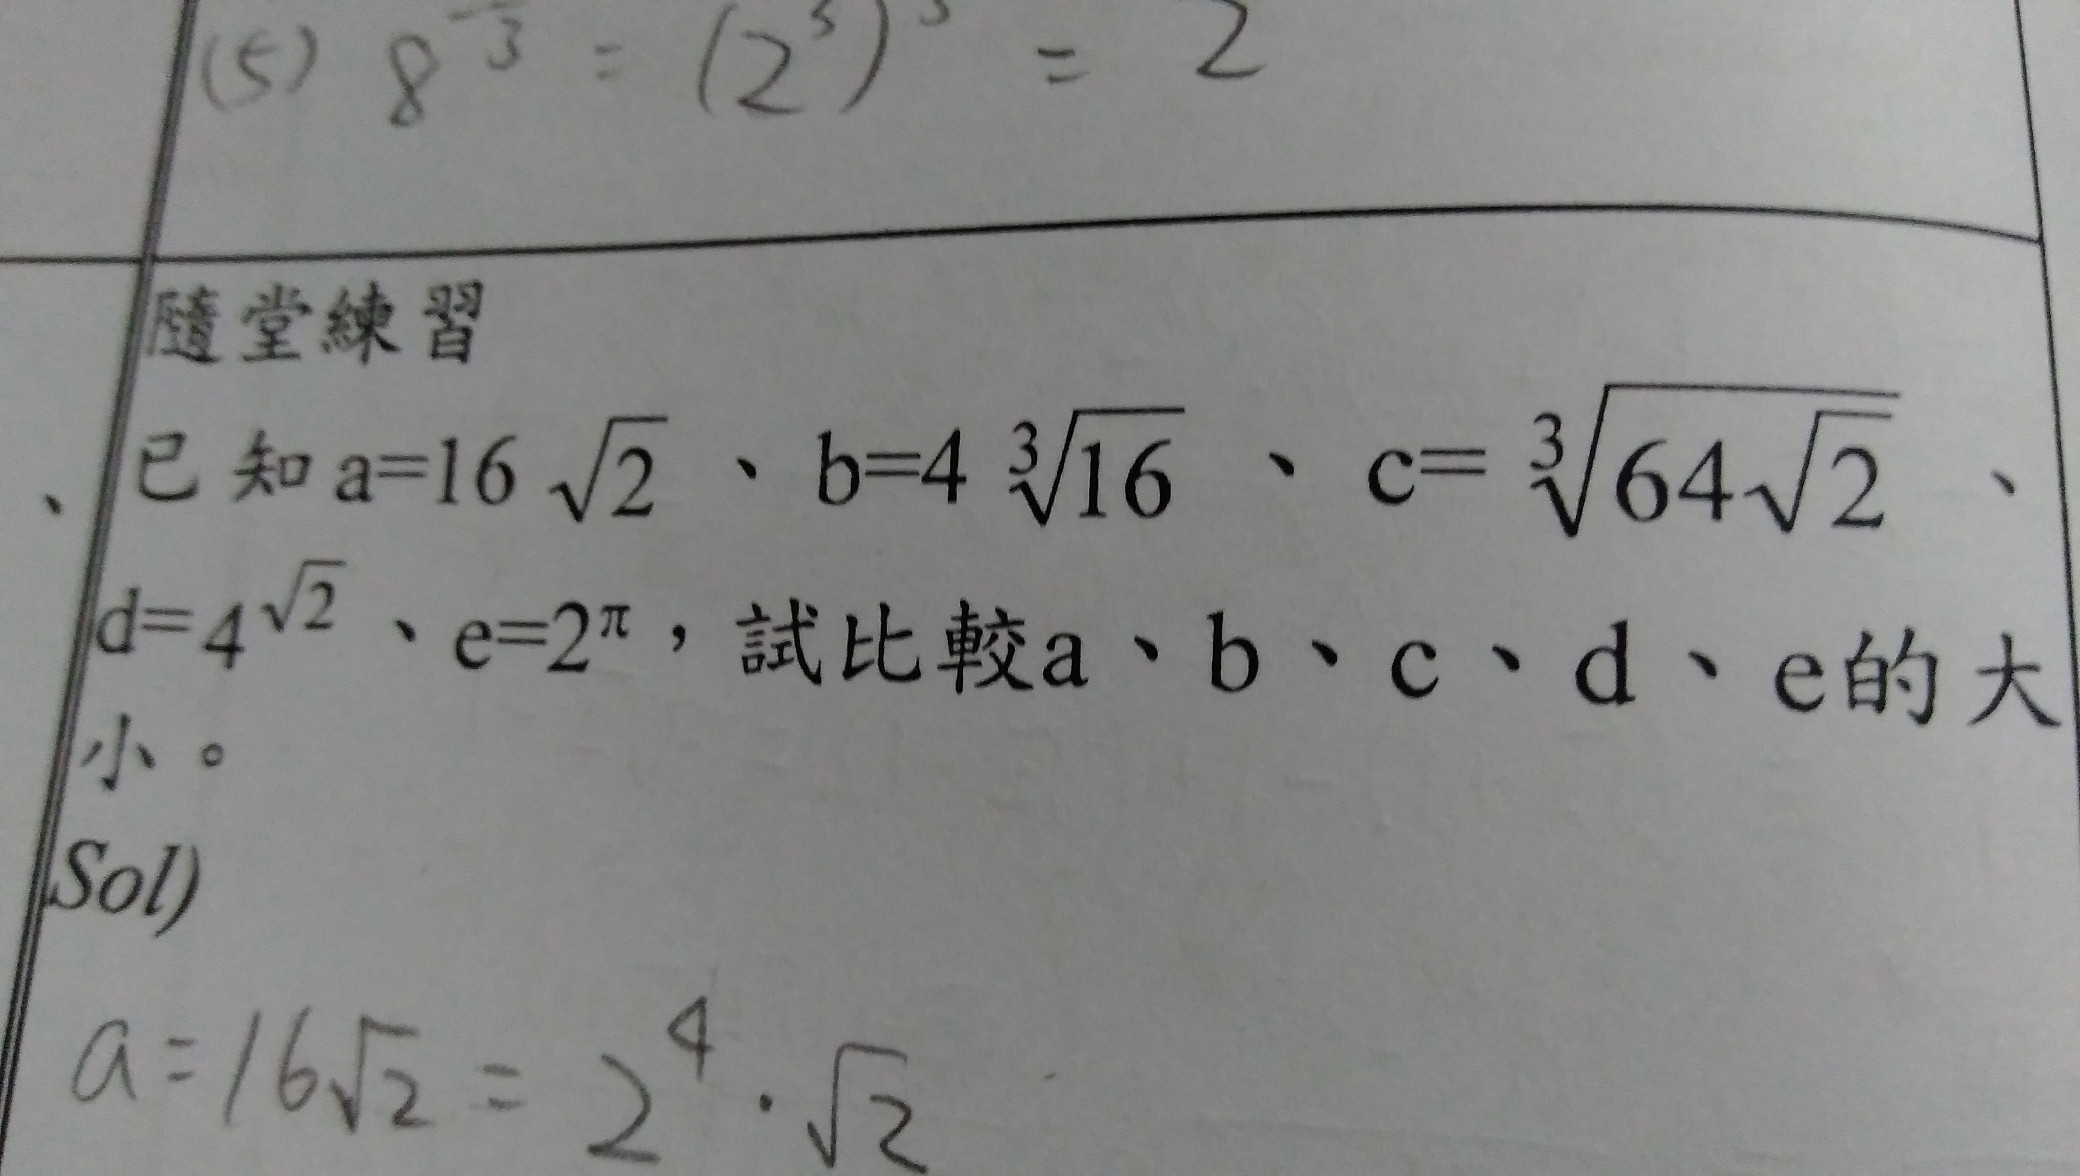 (5) 8^{1/3} = (2^3)^{} = 2
隨堂練習
已知a=16√2、b=4∛16、c=∛(64√2)、
、
d=4^{√2}、e=2^π，試比較a、b、c、d、e的大
小。
Sol)
a=16√2 = 2^4·√2